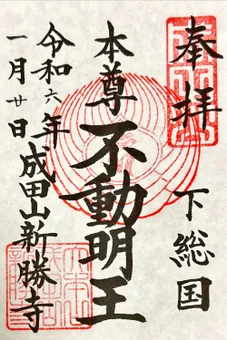 奉拝
下総国
本尊
不動明王
令和六年
一月廿日
成田山新勝寺